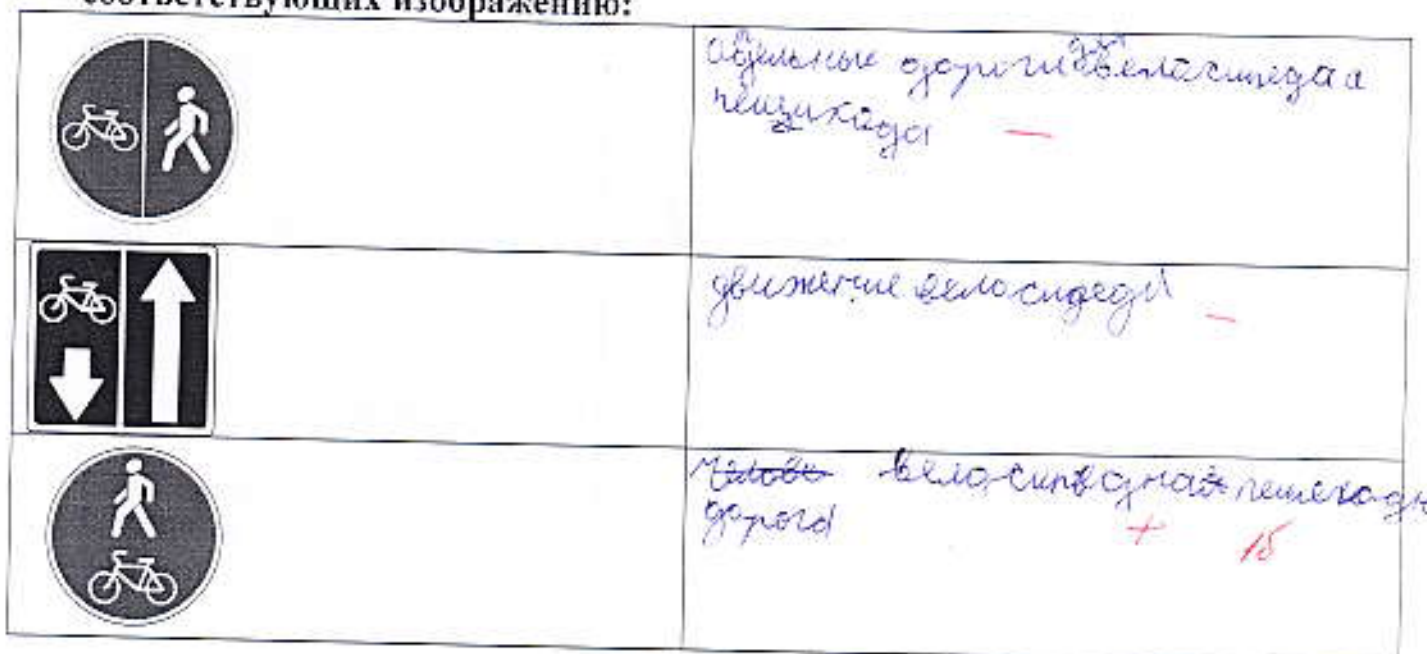 соответствующих изображению:
отдельные дороги для веласипеда и
пещихода –
движение велосипеда –
велосипедная пешеходн
дорога + 1б